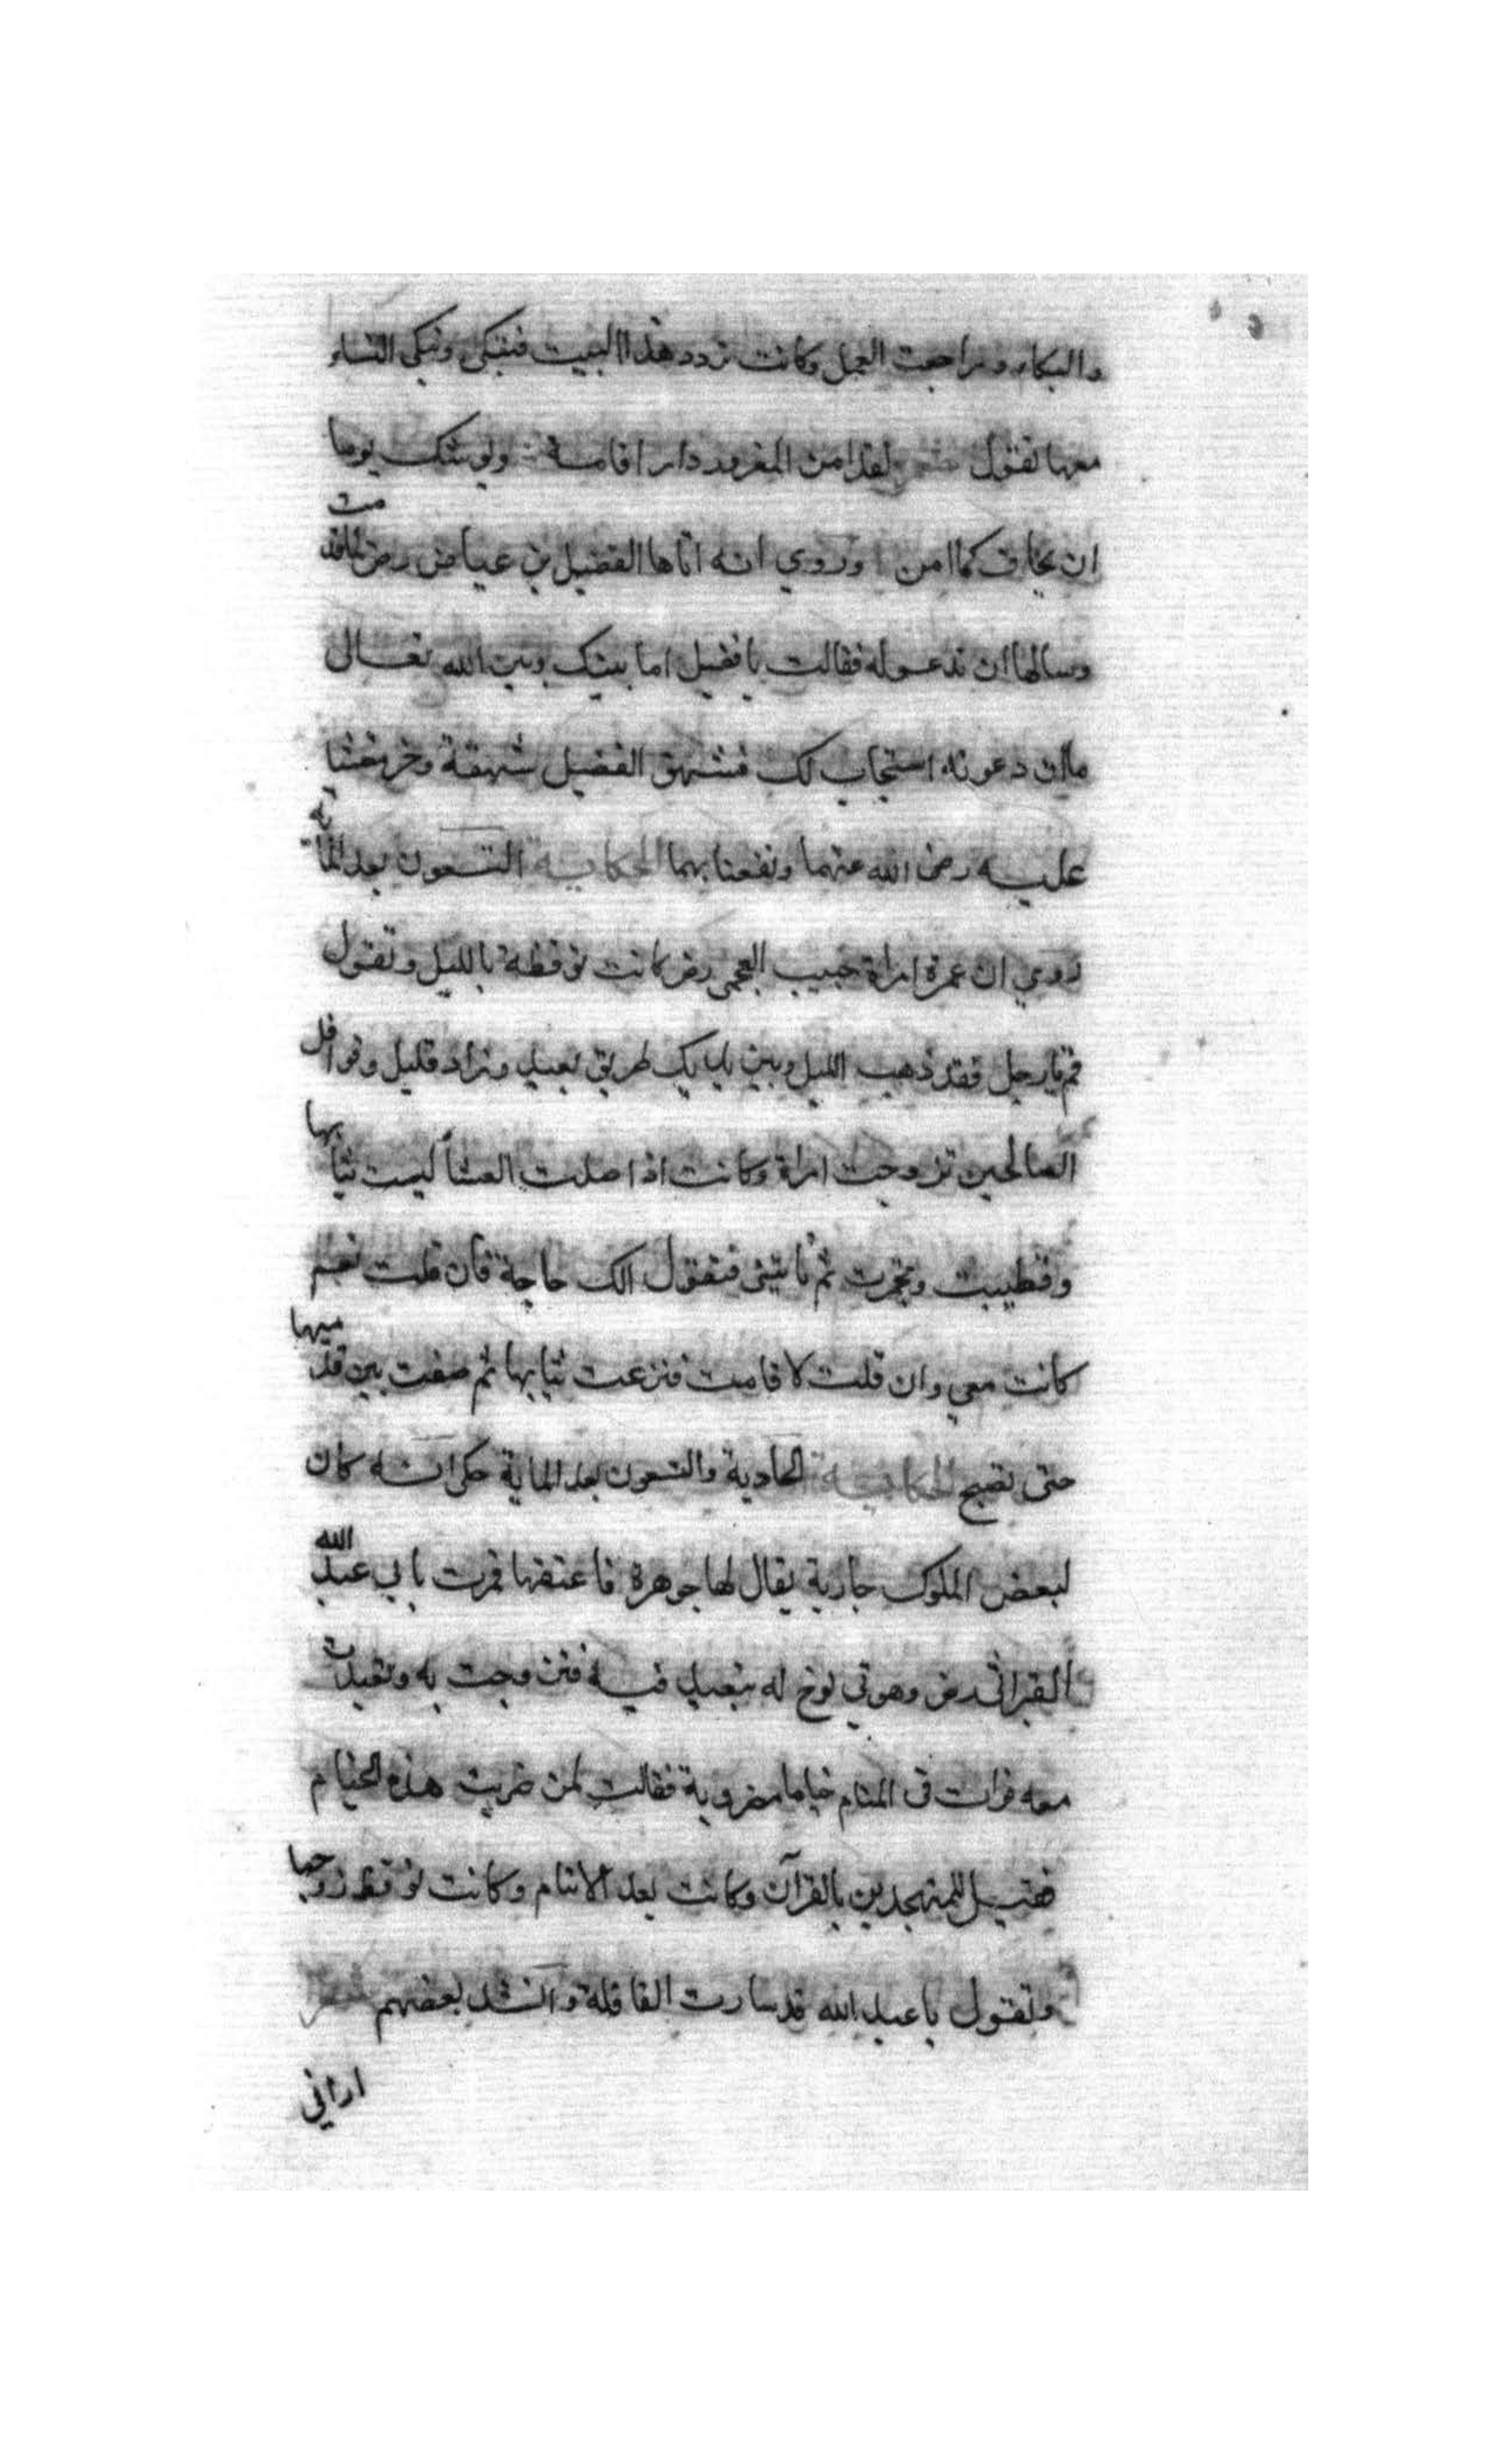 والبكاء وراجعت العمل وكانت تردد هذا البيت فتبكي وتبكي النساء
معها تقول شعر لقد امن المغرور دار اقامة ويوشك يوما
ان يخاف كما امن وروي انه اتاها الفضيل بن عياض رض
وسالها ان تدعو له فقالت يا فضيل اما بينك وبين الله تعالى
ما ان دعوته استجاب لك فشهق الفضيل شهقة وخر مغشيا
عليه رضى الله عنهما ونفعنا بهما الحكاية التسعون بعد الماية
روي ان عمرة امراة حبيب العجمي رض كانت توقظه بالليل وتقول
قم يا رجل فقد ذهب الليل وبين يديك طريق بعيد وزاد قليل وقوافل
الصالحين تزوجت امراة وكانت اذا صلت العشا لبست ثيابها
وتطيبت وتبخرت ثم تاتيني فتقول الك حاجة فان قلت نعم
كانت معي وان قلت لا قامت فنزعت ثيابها ثم صفت بين قدميها
حتى تصبح الحكاية الحادية والتسعون بعد الماية حكي انه كان
لبعض الملوك جارية يقال لها جوهرة فاعتقها فمرت بابي عبد الله
القراني رض وهو في لوخ له يتعبد فيه فتزوجت به وتعبدت
معه فرات في المنام خياما مضروبة فقالت لمن ضربت هذه الخيام
فقيل للمتهجدين بالقرآن وكانت بعد لا تنام وكانت توقظ زوجها
وتقول يا عبد الله قد سارت القافلة وانشد بعضهم شعر
اراني